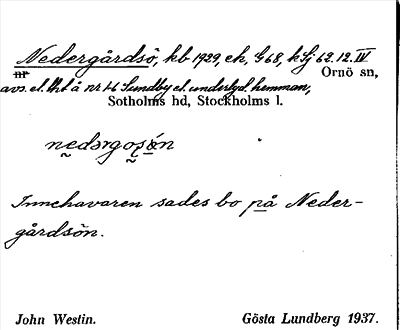 Nedergårdsö, kb 1929, ek, G68, kSj 62.12.IV
nr Ornö sn,
avs. el. lht å nr 1-6 Sundby el. underlyd. hemman,
Sotholms hd, Stockholms l.
nedərgo̜ṣön
Innehavaren sades bo på Neder-
gårdsön.
John Westin. Gösta Lundberg 1937.